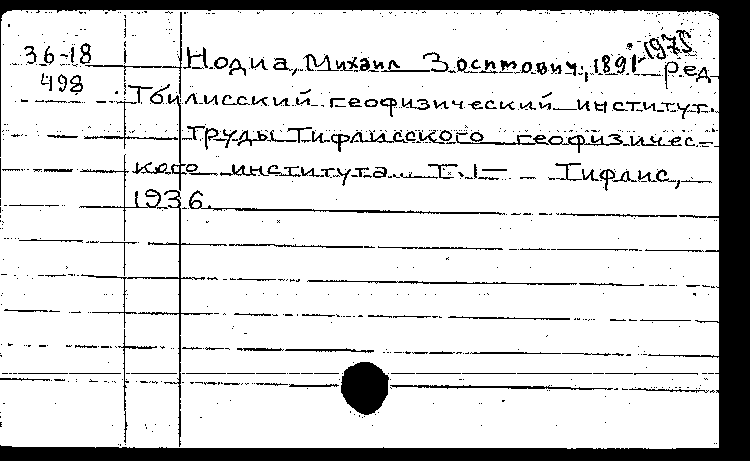 36-18 Нодиа, Михаил Зосимович, 1891-1975 ред
498 Тбилисский геофизический институт.
Труды Тифлисского геофизичес-
кого института... Т.I— - Тифлис,
1936.